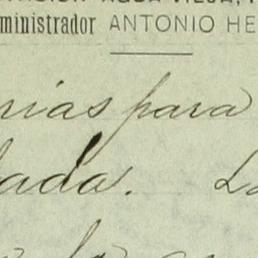 AGUA VIEJA,
ministrador ANTONIO HE
rias para
ada. La
la